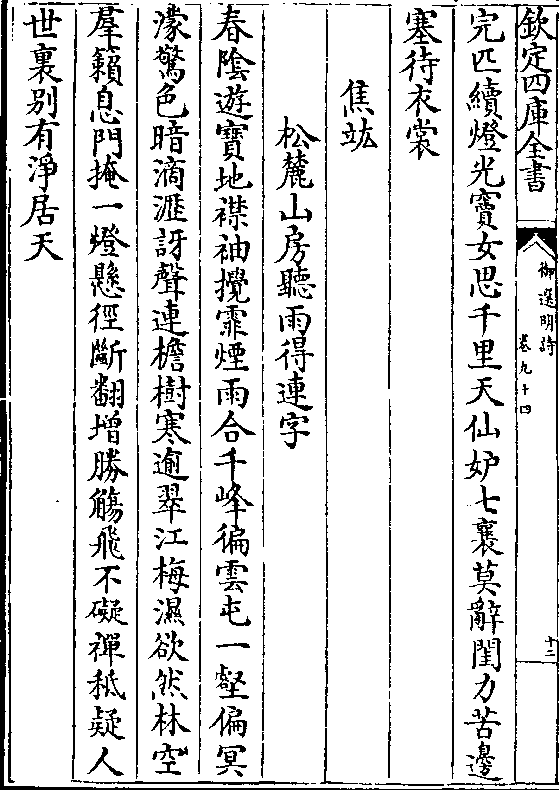 欽定四庫全書
御選明詩
卷九十四
十三
完匹續燈光寳女思千里天仙妒七襄莫辭閨力苦邊
塞待衣裳
焦竑
松麓山房聽雨得連字
春陰遊寶地襟袖攪霏煙雨合千峰徧雲屯一壑偏冥
濛驚色暗滴瀝訝聲連檐樹寒逾翠江梅濕欲然林空
羣籟息門掩一燈懸徑斷翻増勝觴飛不礙禪秪疑人
世裏别有淨居天